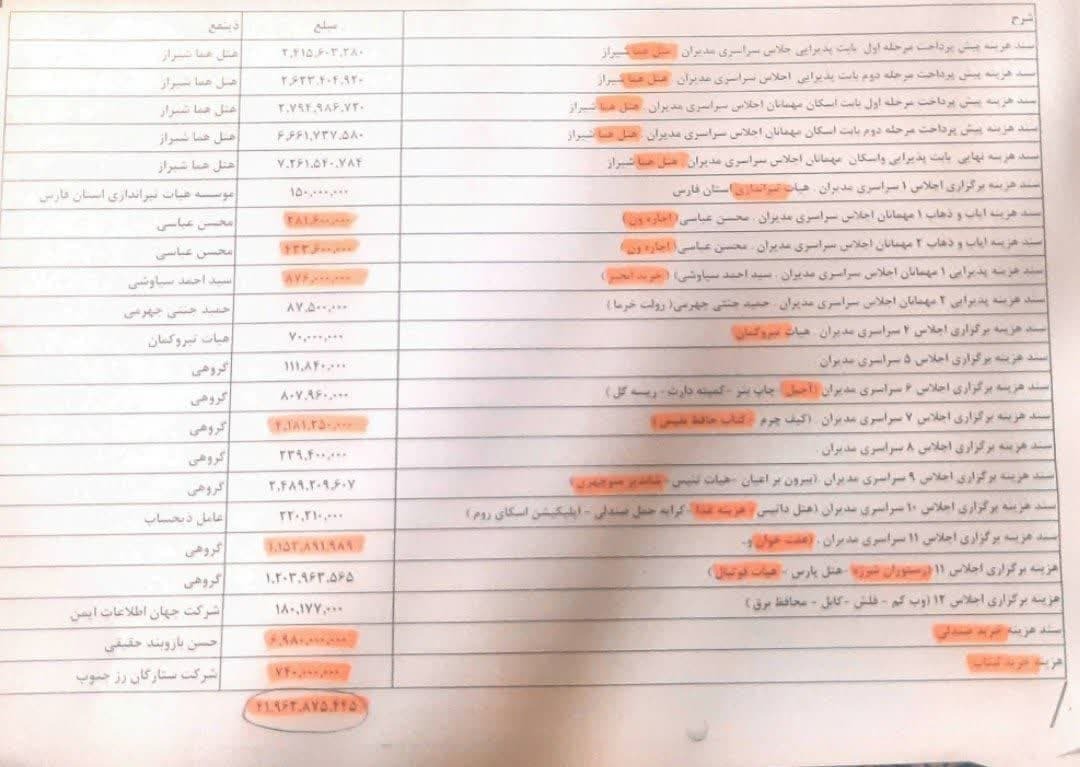 شرح مبلغ ذینفع
سند هزینه پیش پرداخت مرحله اول بابت پذیرایی جلاس سراسری مدیران هتل هما شیراز ۲,۴۱۵,۶۰۳,۲۸۰ هتل هما شیراز
سند هزینه پیش پرداخت مرحله دوم بابت پذیرایی اجلاس سراسری مدیران . هتل هما شیراز ۲,۶۲۳,۴۰۴,۹۲۰ هتل هما شیراز
سند هزینه پیش پرداخت مرحله اول بابت اسکان مهمانان اجلاس سراسری مدیران . هتل هما شیراز ۲,۷۹۴,۹۸۶,۷۲۰ هتل هما شیراز
سند هزینه پیش پرداخت مرحله دوم بابت اسکان مهمانان اجلاس سراسری مدیران . هتل هما شیراز ۶,۶۶۱,۷۳۷,۵۸۰ هتل هما شیراز
سند هزینه نهایی بابت پذیرایی واسکان مهمانان اجلاس سراسری مدیران . هتل هما شیراز ۷,۲۶۱,۵۴۰,۷۸۴ هتل هما شیراز
سند هزینه برگزاری اجلاس ۱ سراسری مدیران . هیات تیراندازی استان فارس ۱۵۰,۰۰۰,۰۰۰ موسسه هیات تیراندازی استان فارس
سند هزینه ایاب و ذهاب ۱ مهمانان اجلاس سراسری مدیران . محسن عباسی (اجاره ون ) ۲۸۱,۶۰۰,۰۰۰ محسن عباسی
سند هزینه ایاب و ذهاب ۲ مهمانان اجلاس سراسری مدیران . محسن عباسی (اجاره ون ) ۴۳۳,۶۰۰,۰۰۰ محسن عباسی
سند هزینه پذیرایی ۱ مهمانان اجلاس سراسری مدیران . سید احمد سیاوشی) (خرید انجیر ) ۸۷۶,۰۰۰,۰۰۰ سید احمد سیاوشی
سند هزینه پذیرایی ۲ مهمانان اجلاس سراسری مدیران . حمید جنتی جهرمی( رولت خرما ) ۸۷,۵۰۰,۰۰۰ حمید جنتی جهرمی
سند هزینه برگزاری اجلاس ۴ سراسری مدیران . هیات تیروکمان ۷۰,۰۰۰,۰۰۰ هیات تیروکمان
سند هزینه برگزاری اجلاس ۵ سراسری مدیران ۱۱۱,۸۴۰,۰۰۰ گروهی
سند هزینه برگزاری اجلاس ۶ سراسری مدیران (آجیل - چاپ بنر -کمیته دارت - ریسه گل ) ۸۰۷,۹۶۰,۰۰۰ گروهی
سند هزینه برگزاری اجلاس ۷ سراسری مدیران . (کیف چرم - کتاب حافظ نفیس ) ۴,۱۸۱,۲۵۰,۰۰۰ گروهی
سند هزینه برگزاری اجلاس ۸ سراسری مدیران . ۲۳۹,۴۰۰,۰۰۰ گروهی
سند هزینه برگزاری اجلاس ۹ سراسری مدیران .(بیرون بر اعیان -هیات تنیس - شاندیز منوچهری ) ۲,۴۸۹,۲۰۹,۶۰۷ گروهی
سند هزینه برگزاری اجلاس ۱۰ سراسری مدیران (هتل - هزینه غذا -کرایه حمل صندلی - اپلیکیشن اسکای روم ) ۲۲۰,۲۱۰,۰۰۰ عامل ذیحساب
سند هزینه برگزاری اجلاس ۱۱ سراسری مدیران . (هفت خوان و.. ۱,۱۵۳,۸۹۱,۹۸۹ گروهی
هزینه برگزاری اجلاس ۱۱ (رستوران شیرزه -هتل پارس - هیات فوتبال ) ۱,۲۰۳,۹۶۳,۵۶۵ گروهی
هزینه برگزاری اجلاس ۱۲ (وب کم - فلش -کابل - محافظ برق ) ۱۸۰,۱۷۷,۰۰۰ شرکت جهان اطلاعات ایمن
سند هزینه خرید صندلی ۶,۹۸۰,۰۰۰,۰۰۰ حسن بازوبند حقیقی
هزینه خرید لپتاپ ۷۴۰,۰۰۰,۰۰۰ شرکت ستارگان رز جنوب
۴۱,۹۶۳,۸۷۵,۴۴۵